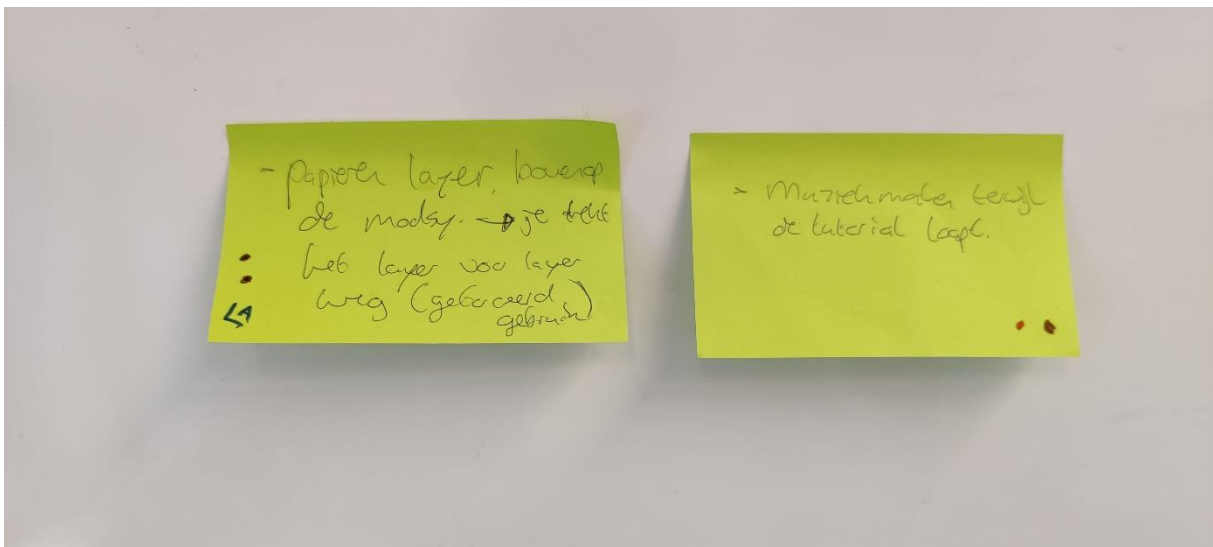 - Papieren layer, bovenop
de modsy. → je trekt
het layer voor layer
weg (geforceerd
gebruik)
> Muziek maken terwijl
de tutorial loopt.